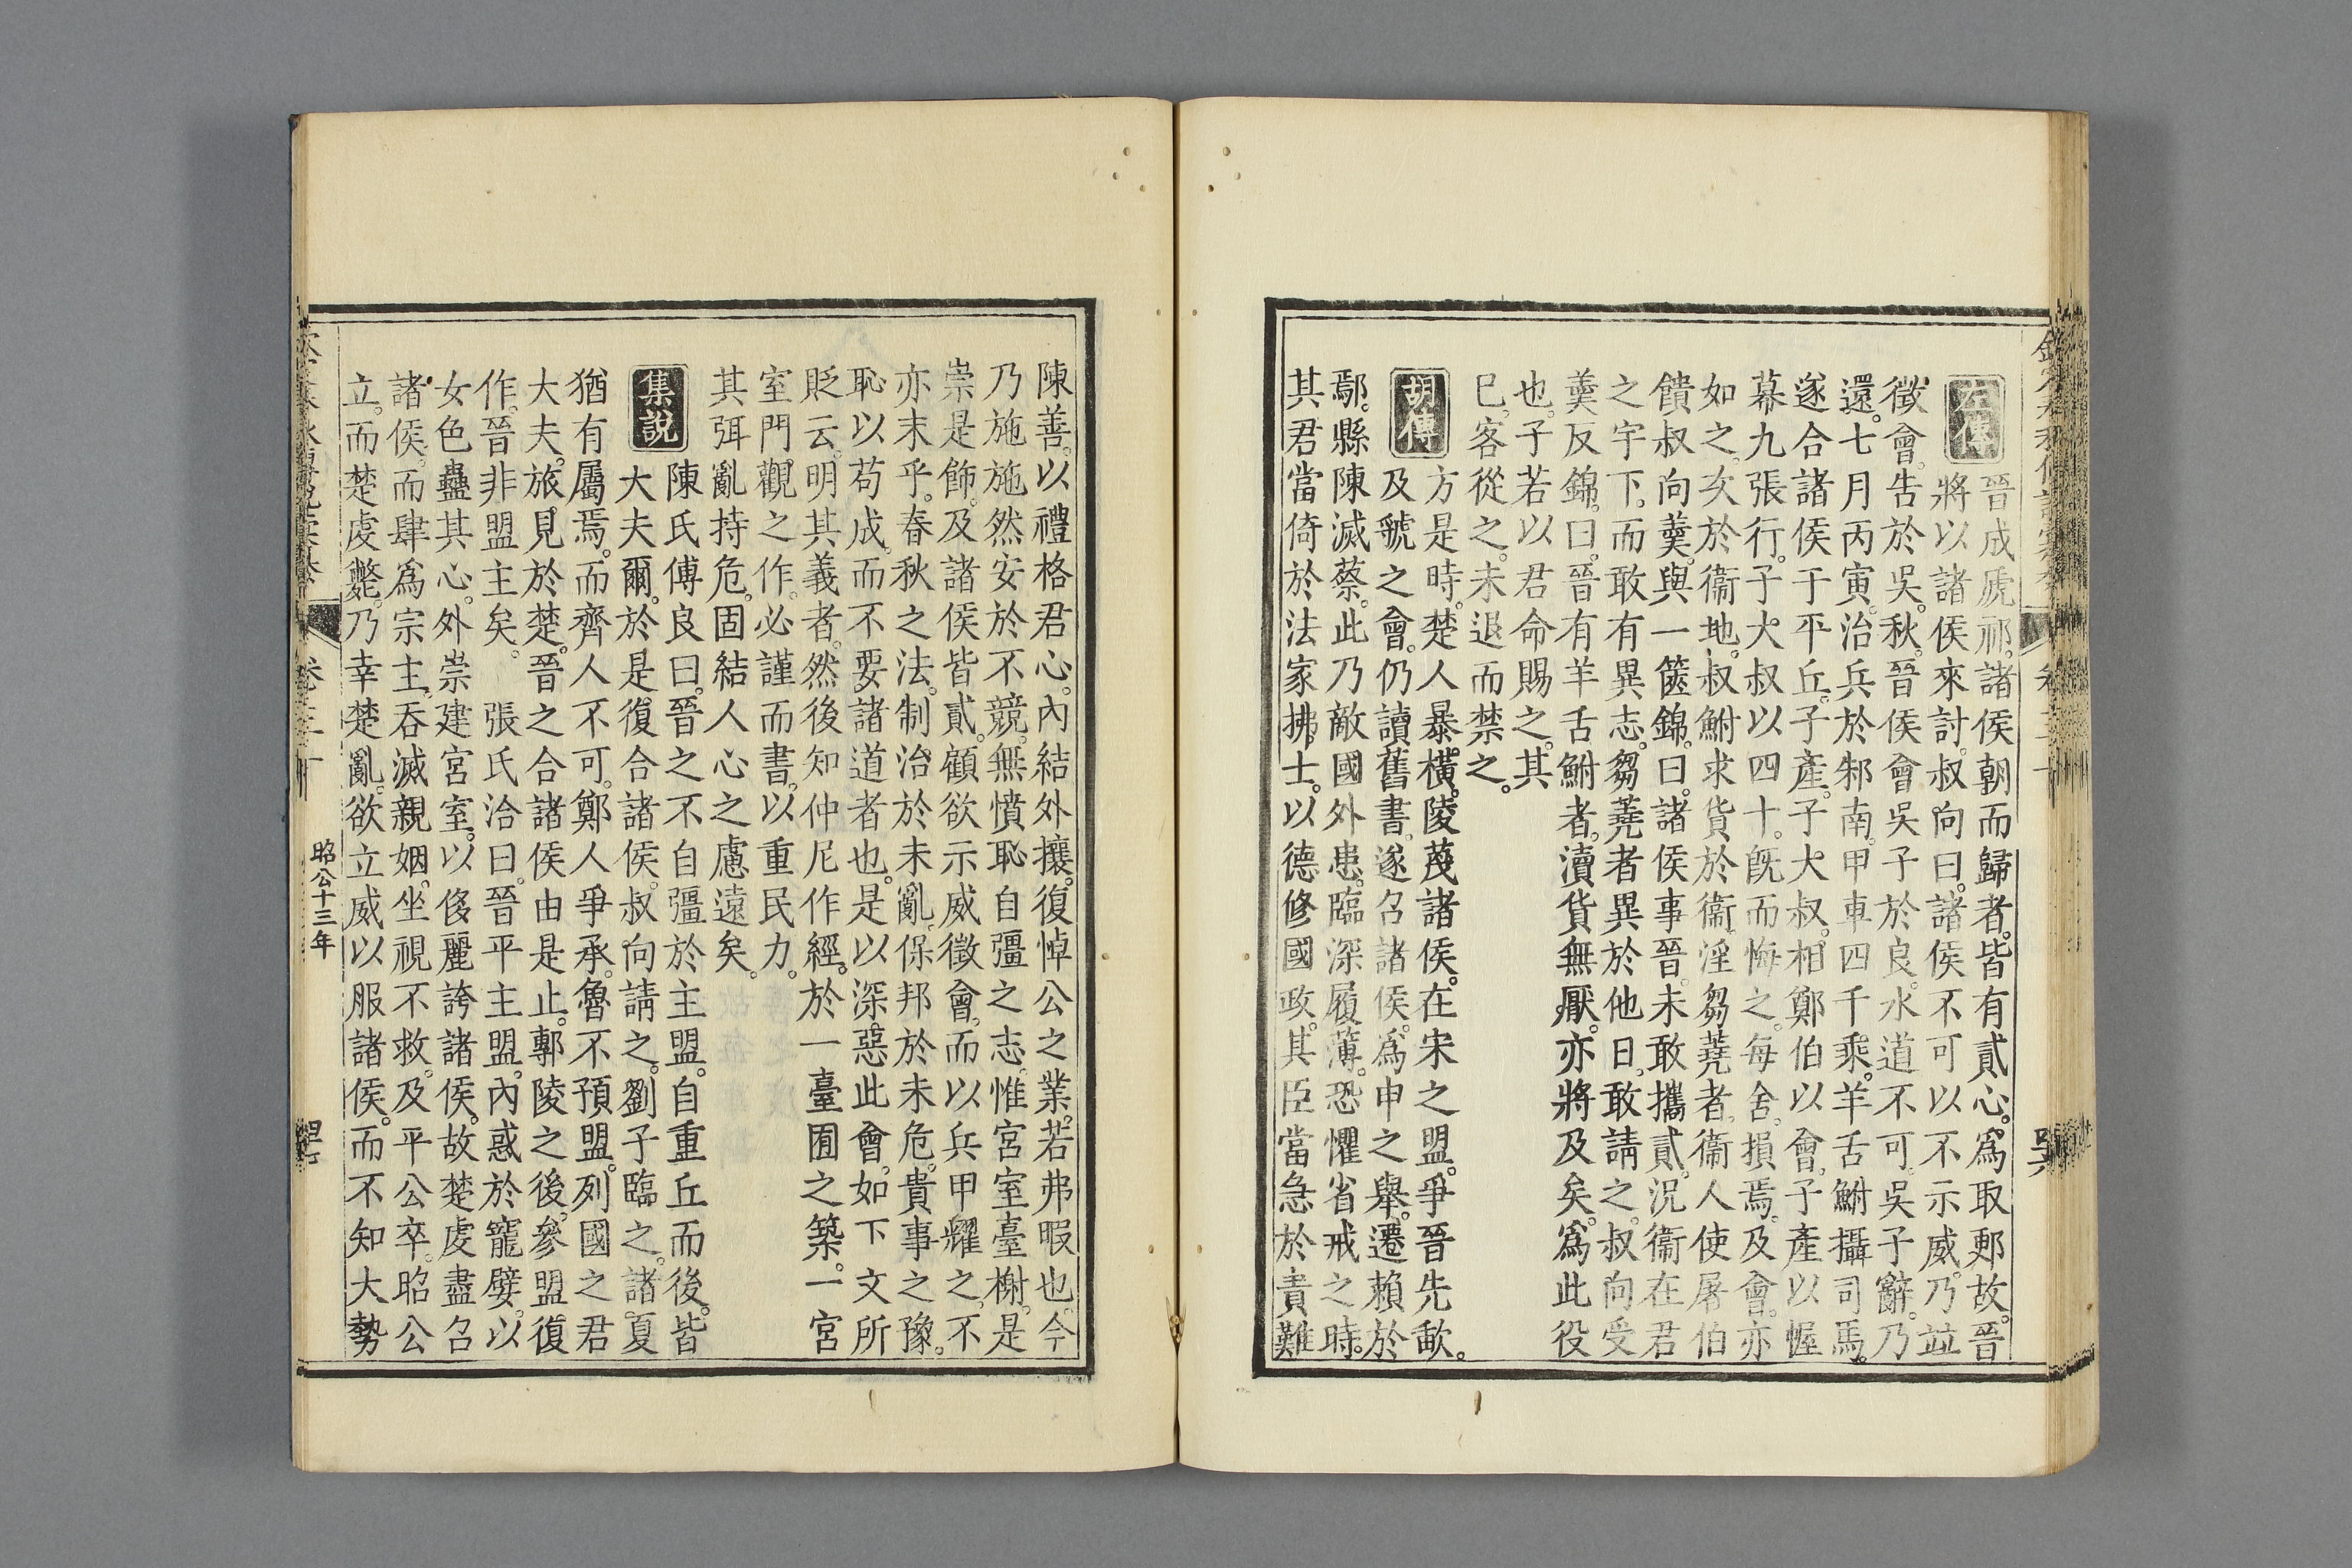 左傳
晉成虒祁。諸侯朝而歸者。皆有貳心。爲取郠故。晉
將以諸侯來討。叔向曰。諸侯不可以不示威。乃竝
徵會。告於吳。秋。晉侯會吳子於良。水道不可。吳子辭。乃
還。七月丙寅。治兵於邾南。甲車四千乘。羊舌鮒攝司馬。
遂合諸侯于平丘。子產。子大叔。相鄭伯以會。子產以幄
幕九張行。子大叔以四十。旣而悔之。每舍。損焉。及會。亦
如之。次於衞地。叔鮒求貨於衞。淫芻蕘者。衞人使屠伯
饋叔向羹。與一篋錦。曰。諸侯事晉。未敢攜貳。況衞在君
之宇下。而敢有異志。芻蕘者異於他日。敢請之。叔向受
羹反錦。曰。晉有羊舌鮒者。瀆貨無厭。亦將及矣。爲此役
也。子若以君命賜之。其
已。客從之。未退而禁之。
胡傳
方是時。楚人暴橫。陵蔑諸侯。在宋之盟。爭晉先歃。
及虢之會。仍讀舊書。遂召諸侯。爲申之舉。遷賴於
鄢。縣陳滅蔡。此乃敵國外患。臨深履薄。恐懼省戒之時。
其君當倚於法家拂士。以德修國政。其臣當急於責難
陳善。以禮格君心。內結外攘。復悼公之業。若弗暇也。今
乃施施然安於不競。無憤恥自彊之志。惟宮室臺榭。是
崇是飾。及諸侯皆貳。顧欲示威徵會。而以兵甲耀之。不
亦末乎。春秋之法。制治於未亂。保邦於未危。貴事之豫。
恥以苟成。而不要諸道者也。是以深惡此會。如下文所
貶云。明其義者。然後知仲尼作經。於一臺囿之築。一宮
室門觀之作。必謹而書。以重民力。
其弭亂持危。固結人心之慮遠矣。
集說
陳氏傅良曰。晉之不自彊於主盟。自重丘而後。皆
大夫爾。於是復合諸侯。叔向請之。劉子臨之。諸夏
猶有屬焉。而齊人不可。鄭人爭承。魯不預盟。列國之君
大夫。旅見於楚。晉之合諸侯由是止。鄟陵之後。參盟復
作。晉非盟主矣。 張氏洽曰。晉平主盟。內惑於寵嬖。以
女色蠱其心。外崇建宮室。以侈麗誇諸侯。故楚虔盡召
諸侯。而肆爲宗主。吞滅親姻。坐視不救。及平公卒。昭公
立。而楚虔斃。乃幸楚亂。欲立威以服諸侯。而不知大勢
昭公十三年